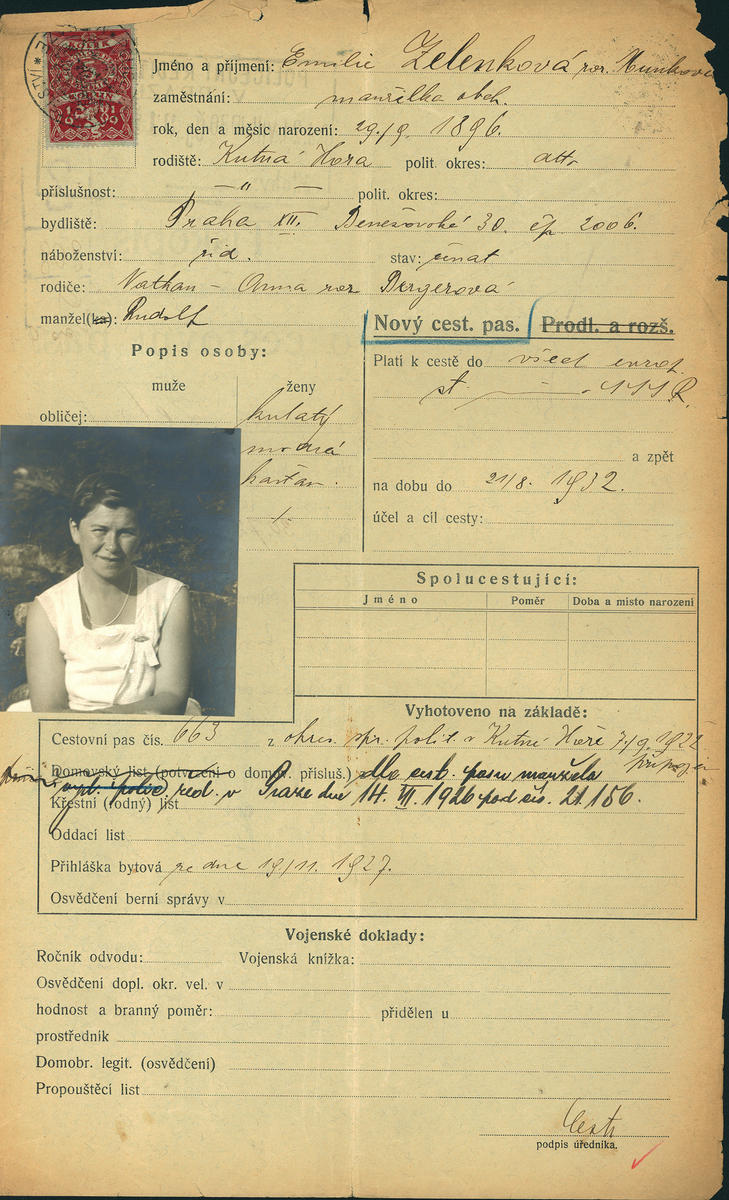 Jméno a příjmení: Emilie Zelenková roz. Munková
zaměstnání: manželka obch.
rok, den a měsíc narození: 29/9. 1896.
rodiště: Kutná Hora polit. okres: dtto
příslušnost: — " — polit. okres:
bydliště: Praha XII. Benešovská 30. čp. 2006.
náboženství: žid. stav:
rodiče: Nathan – Anna roz Bergerová
manžel(ka): Rudolf
Nový cest. pas. Prodl. a rozš.
Popis osoby:
Platí k cestě do všech evrop.
st. SSSR.
muže ženy
obličej: kulatý
modrá
kaštan.
a zpět
na dobu do 21/8. 1932.
účel a cíl cesty:
Spolucestující:
Jméno Poměr Doba a místo narození
Vyhotoveno na základě:
Cestovní pas čís. 663 z okres. spr. polit v Kutné Hoře 7/9. 1922
připojen
Domovský list (potvrzení o domov. přísluš.) dle cest. pasu manžela
vyd. polic. řed. v Praze dne 14. VI. 1926 pod čís. 21.156.
Křestní (rodný) list
Oddací list
Přihláška bytová ze dne 19/11. 1927.
Osvědčení berní správy v
Vojenské doklady:
Ročník odvodu: Vojenská knížka:
Osvědčení dopl. okr. vel. v
hodnost a branný poměr: přidělen u
prostředník
Domobr. legit. (osvědčení)
Propouštěcí list
podpis úředníka.